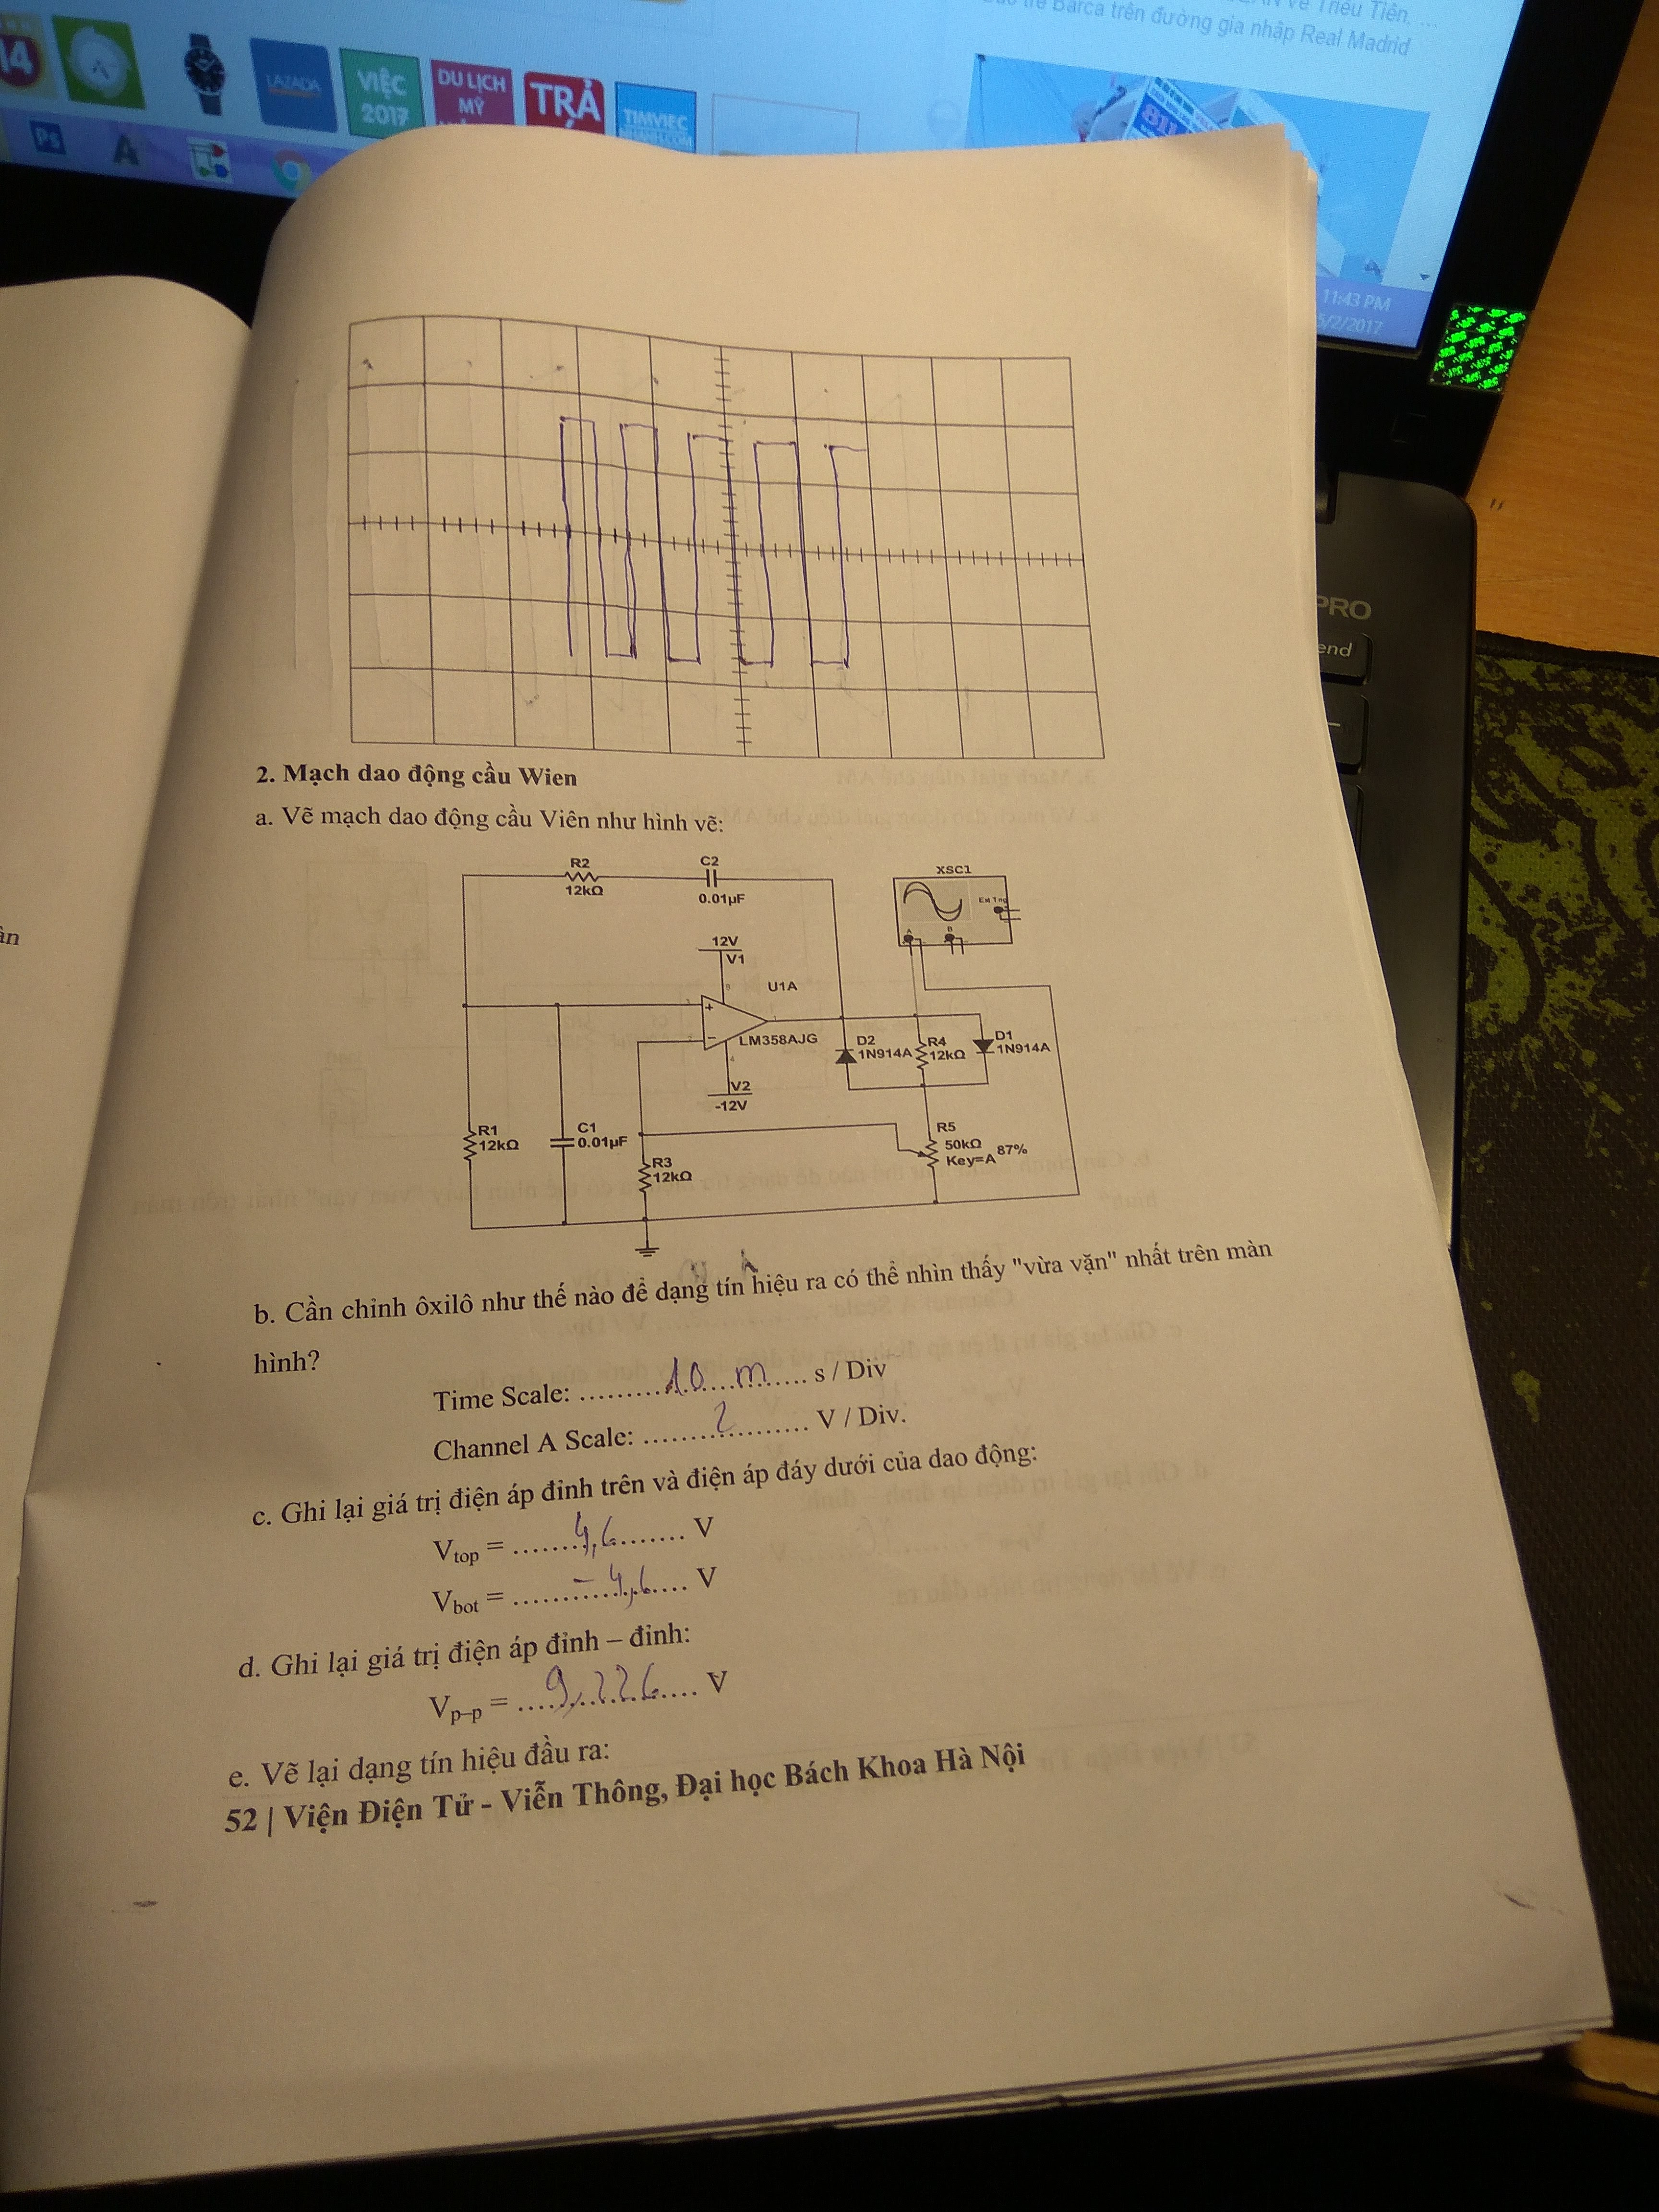 14
LAZADA
VIỆC
2017
DU LỊCH
MỸ
TRẢ
TIMVIEC
NHANH.COM
Ps
trẻ Barca trên đường gia nhập Real Madrid
về Triều Tiên, ...
811
11:43 PM
5/2/2017
PRO
end
2. Mạch dao động cầu Wien
a. Vẽ mạch dao động cầu Viên như hình vẽ:
R2
12kΩ
C2
0.01µF
XSC1
Ext Trig
A
B
12V
V1
8
U1A
3
+
-
1
LM358AJG
4
V2
-12V
D2
1N914A
R4
12kΩ
D1
1N914A
R1
12kΩ
C1
0.01µF
R3
12kΩ
R5
50kΩ
Key=A
87%
b. Cần chỉnh ôxilô như thế nào để dạng tín hiệu ra có thể nhìn thấy "vừa vặn" nhất trên màn
hình?
Time Scale: ........10 m........ s / Div
Channel A Scale: ........2........ V / Div.
c. Ghi lại giá trị điện áp đỉnh trên và điện áp đáy dưới của dao động:
Vtop = ........4,6........ V
Vbot = ........-4,6........ V
d. Ghi lại giá trị điện áp đỉnh – đỉnh:
Vp–p = ........9,226........ V
e. Vẽ lại dạng tín hiệu đầu ra:
52 | Viện Điện Tử - Viễn Thông, Đại học Bách Khoa Hà Nội